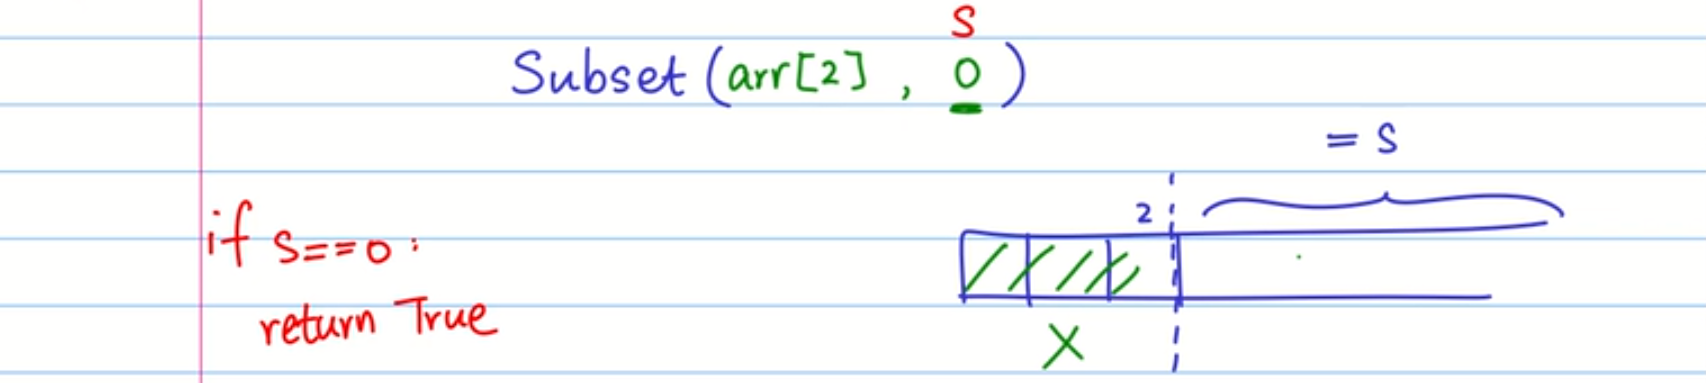 S
Subset (arr[2] , 0 )
= S
2
if S==0 :
return True
X